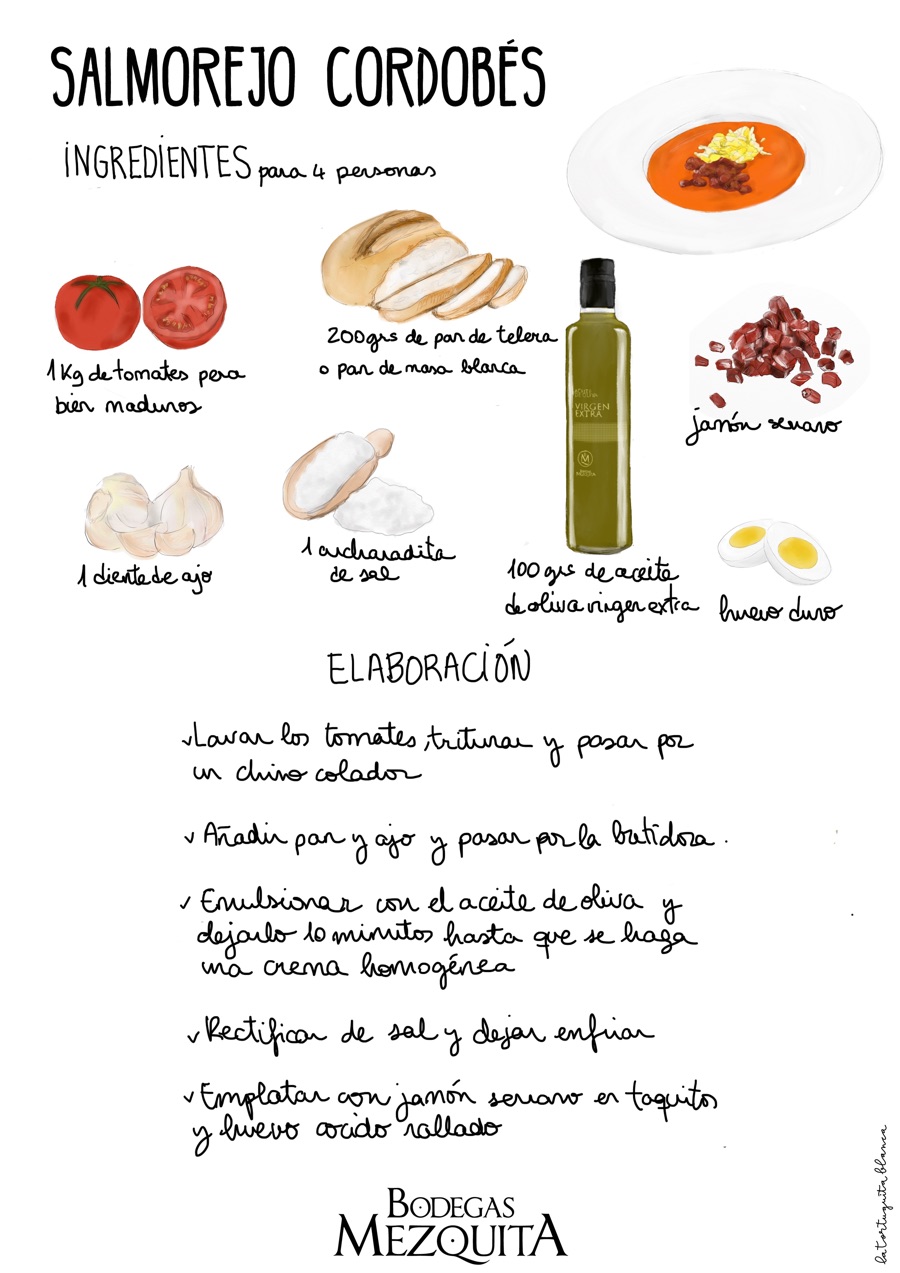 SALMOREJO CORDOBÉS
INGREDIENTES para 4 personas
1 Kg de tomates pera
bien maduros
200 grs de pan de telera
o pan de masa blanca
ACEITE
DE OLIVA
VIRGEN
EXTRA
M
BODEGAS
MEZQUITA
jamón serrano
1 diente de ajo
1 cucharadita
de sal
100 grs de aceite
de oliva virgen extra
huevo duro
ELABORACIÓN
✓Lavar los tomates, triturar y pasar por
un chino colador
✓Añadir pan y ajo y pasar por la batidora.
✓Emulsionar con el aceite de oliva y
dejarlo 10 minutos hasta que se haga
una crema homogénea
✓Rectificar de sal y dejar enfriar
✓Emplatar con jamón serrano en taquitos
y huevo cocido rallado
BODEGAS
MEZQUITA
la tortuguita blanca